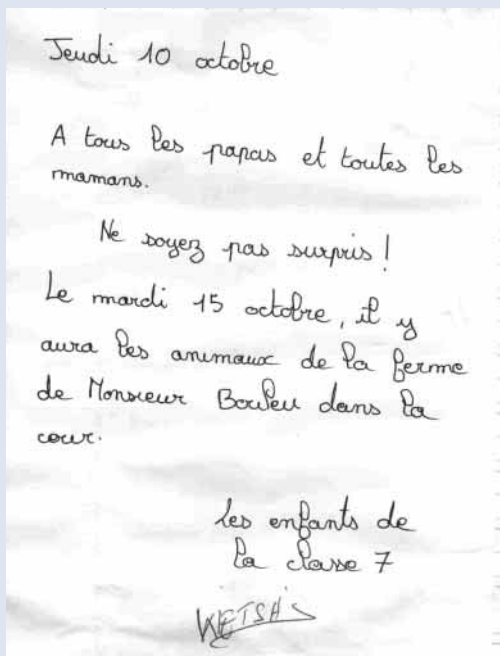 Jeudi 10 octobre
A tous les papas et toutes les
mamans.
Ne soyez pas surpris !
Le mardi 15 octobre, il y
aura les animaux de la ferme
de Monsieur Bouleu dans la
cour.
Les enfants de
la classe 7